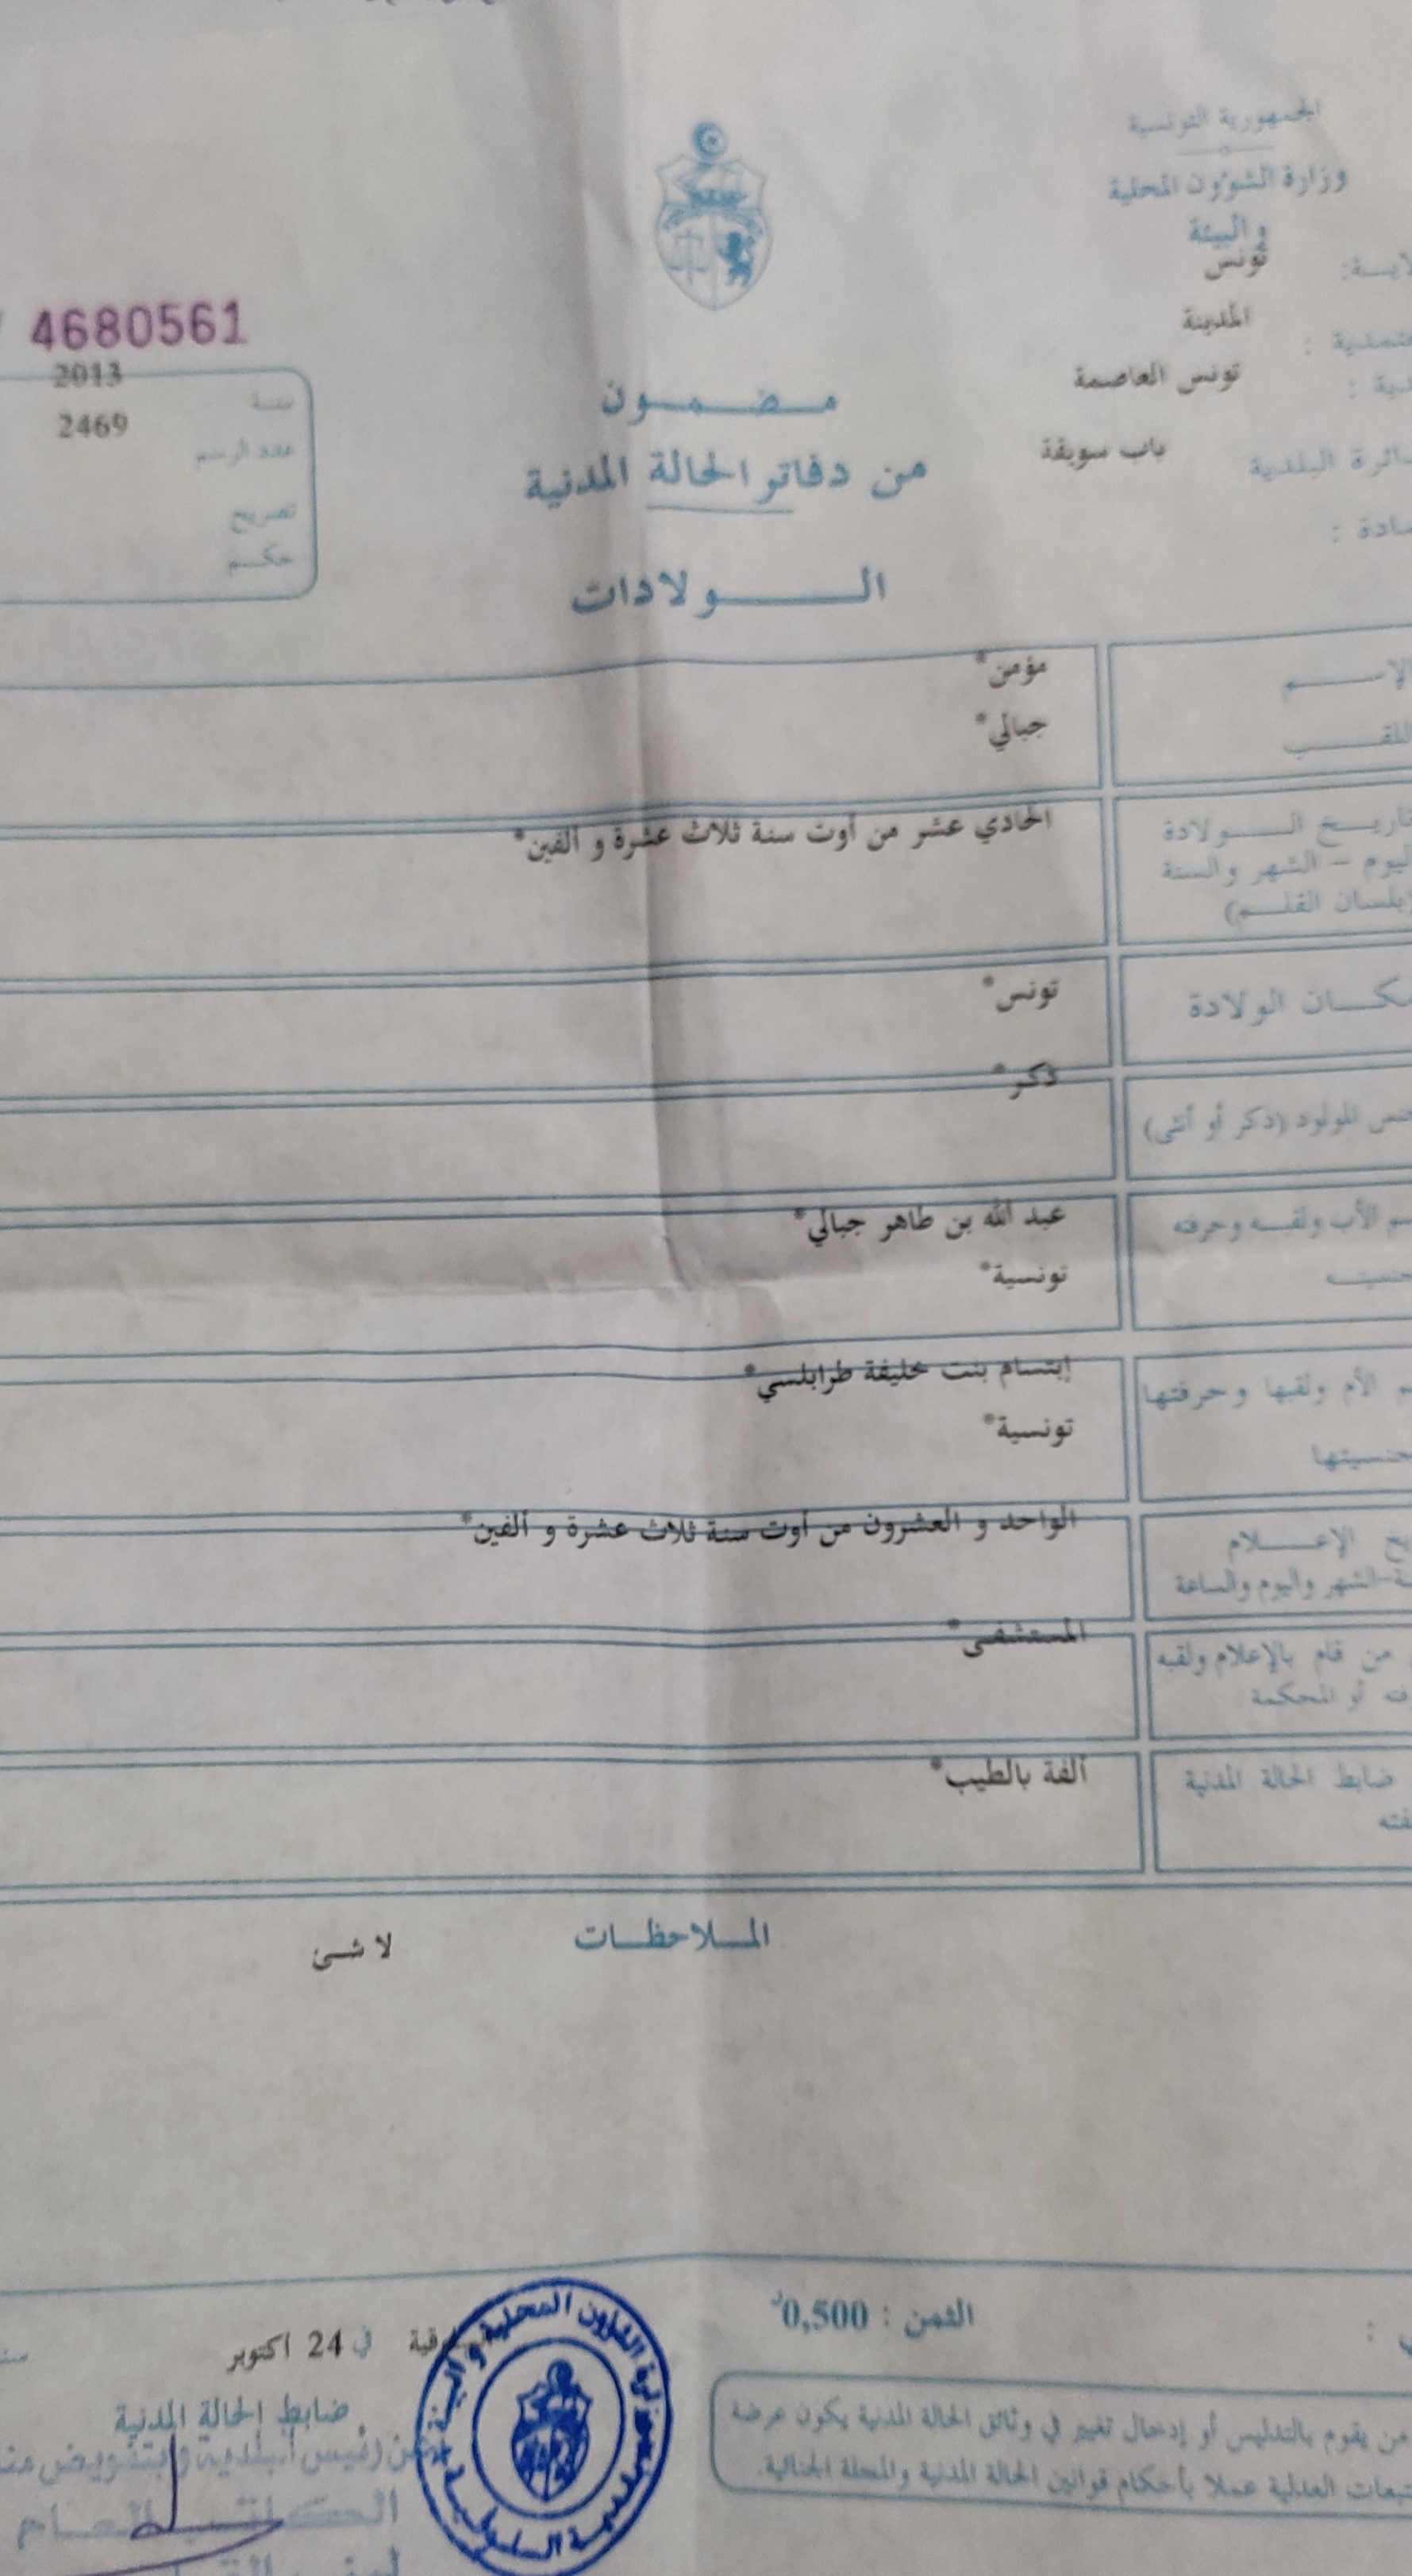 الجمهورية التونسية
وزارة الشؤون المحلية
والبيئة
تونس
المدينة
تونس العاصمة
باب سويقة
ـائرة البلدية
4680561
2013
سنة
2469
عدد الرسم
تصريح
حكم
مضمون
من دفاتر الحالة المدنية
الولادات
الإسم
مؤمن*
اللقب
جبالي*
تاريخ الولادة
اليوم - الشهر والسنة
(بلسان القلم)
الحادي عشر من أوت سنة ثلاث عشرة و ألفين*
مكان الولادة
تونس*
جنس المولود (ذكر أو أنثى)
ذكر*
ـسم الأب ولقبه وحرفته
عبد الله بن طاهر جبالي*
ـجنسيته
تونسية*
ـم الأم ولقبها وحرفتها
إبتسام بنت خليفة طرابلسي*
ـجنسيتها
تونسية*
ـيخ الإعلام
ـة-الشهر واليوم والساعة
الواحد و العشرون من أوت سنة ثلاث عشرة و ألفين*
من قام بالإعلام ولقبه
ـفته أو المحكمة
المستشفى*
ضابط الحالة المدنية
ألفة بالطيب*
الملاحظات
لا شئ
الثمن : 0,500د
في 24 اكتوبر
ضابط الحالة المدنية
عن رئيس البلدية وبتفويض منه
الكاتب العام
من يقوم بالتدليس أو إدخال تغيير في وثائق الحالة المدنية يكون عرضة
ـتبعات العدلية عملا بأحكام قوانين الحالة المدنية والمجلة الجنائية.
وزارة الشؤون المحلية و البيئة